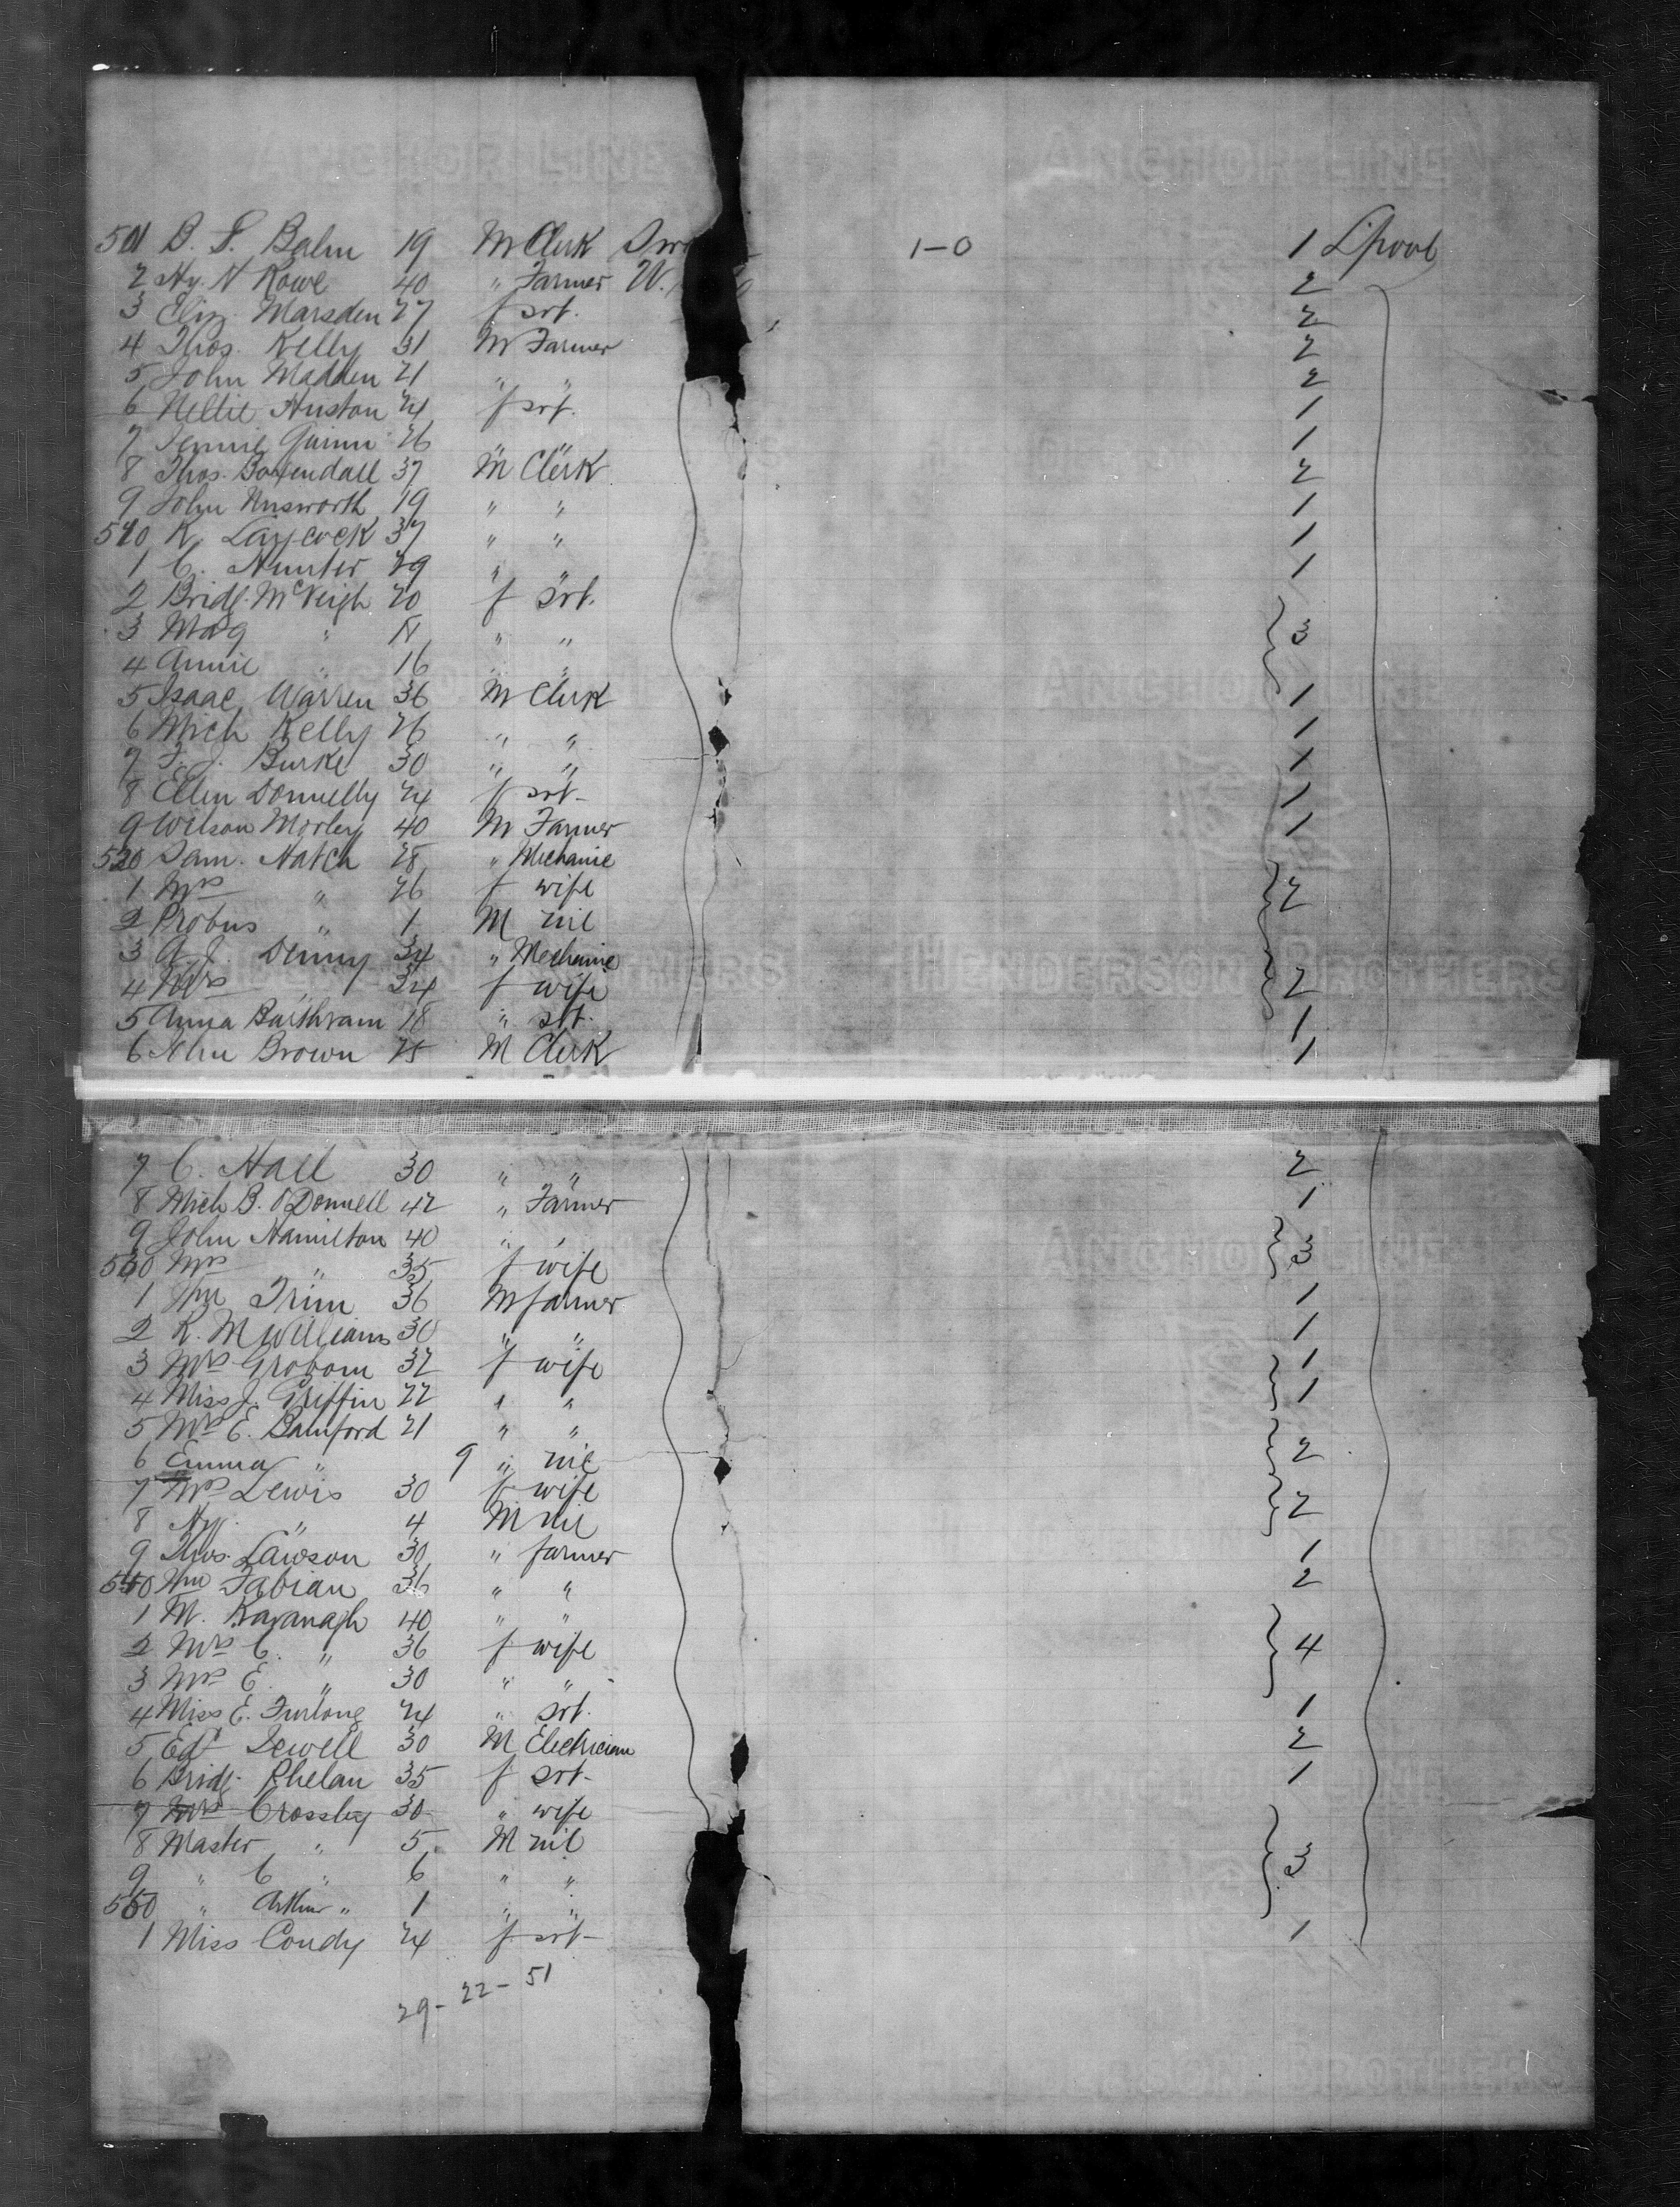 ANCHOR LINE ANCHOR LINE
501 B. S. Balm 19 M Clerk 1-0 1 L'pool
2 Hy. N Rowe 40 " Farmer 2
3 Eliz. Marsden 27 f srt. 2
4 Thos. Kelly 31 M Farmer 2
5 John Madden 21 " " 2
6 Nellie Huston 24 f srt. 1
7 Jennie Quinn 26 " " 1
8 Thos. Baxendall 37 M Clerk 2
9 John Unsworth 19 " " 1
510 R. Laycock 37 " " 1
1 C. Hunter 29 " " 1
2 Bridg. McVeigh 20 f srt.
3 Mag " " " 3
4 Annie " 16 " "
5 Isaac Warren 36 M Clerk 1
6 Mich Kelly 26 " " 1
7 F. J. Burke 30 " " 1
8 Ellen Donnelly 24 f srt- 1
9 Wilson Morley 40 M Farmer 1
520 Sam. Hatch 28 " Mechanic
1 Mrs " 26 f wife 2
2 Probus " 1 M nil
3 A. J. Denny 34 " Mechanic
4 Mrs " 34 f wife 2
5 Anna Baithram 18 " srt. 1
6 John Brown 25 M Clerk 1
7 C. Hall 30 " " 2
8 Mich B. O'Donnell 42 " Farmer 1
9 John Hamilton 40 " "
530 Mrs " 35 f wife 3
1 Wm Trim 36 M farmer 1
2 R. McWilliams 30 " " 1
3 Mrs Grobom 32 f wife 1
4 Miss J. Griffin 22 " " 1
5 Mrs E. Bamford 21 " "
6 Emma " 9 " nil 2
7 Mrs Lewis 30 f wife
8 Hy. " 4 M nil 2
9 Thos. Lawson 30 " farmer 1
540 Wm Fabian 36 " " 2
1 M. Kavanagh 40 " "
2 Mrs C. " 36 f wife 4
3 Mrs E. " 30 " "
4 Miss E. Furlong 24 " srt. 1
5 Edt Jewell 30 M Electrician 2
6 Bridg. Phelan 35 f srt- 1
7 Mrs Crossley 30 " wife
8 Master " 5 M nil
9 " C " 6 " " 3
550 " Arthur " 1 " "
1 Miss Condy 24 f srt- 1
29- 22- 51
HENDERSON BROTHERS